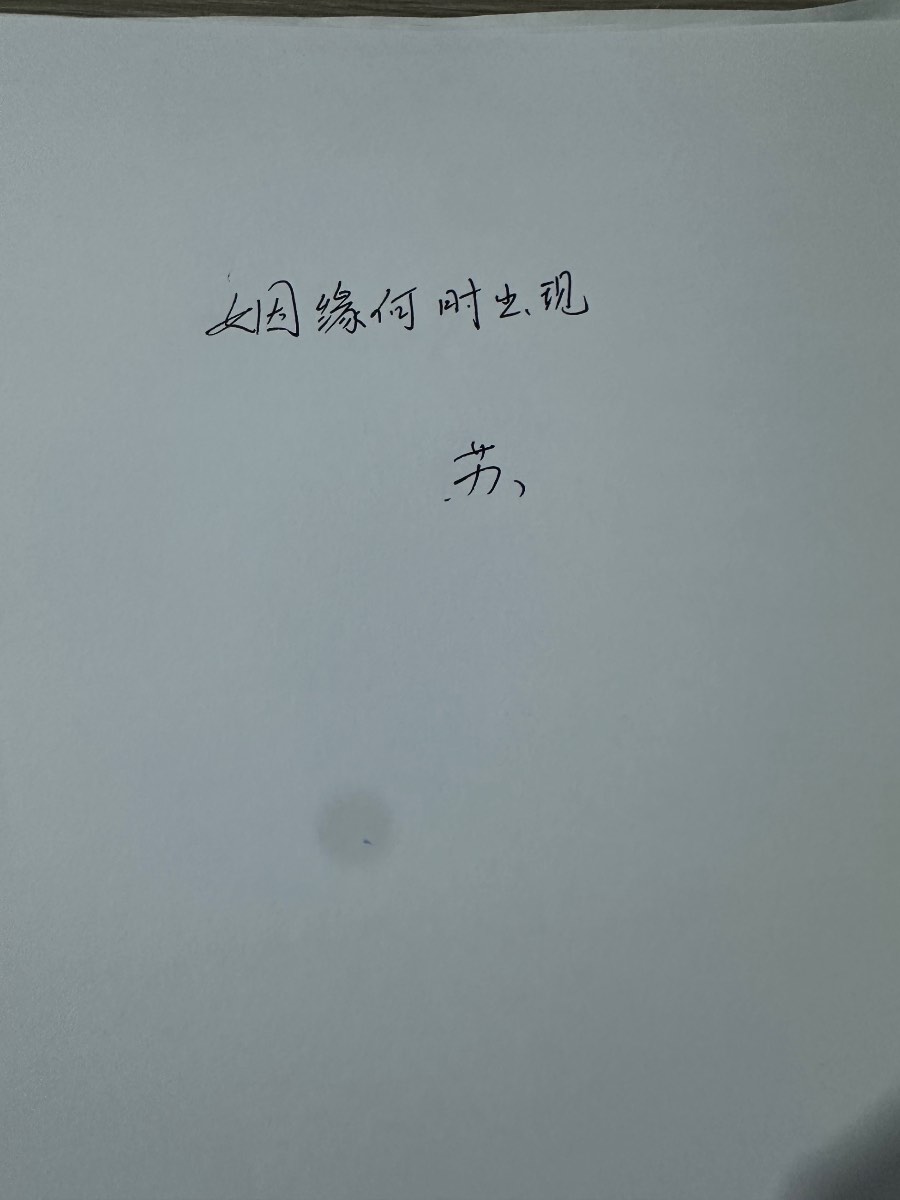 姻缘何时出现
苏